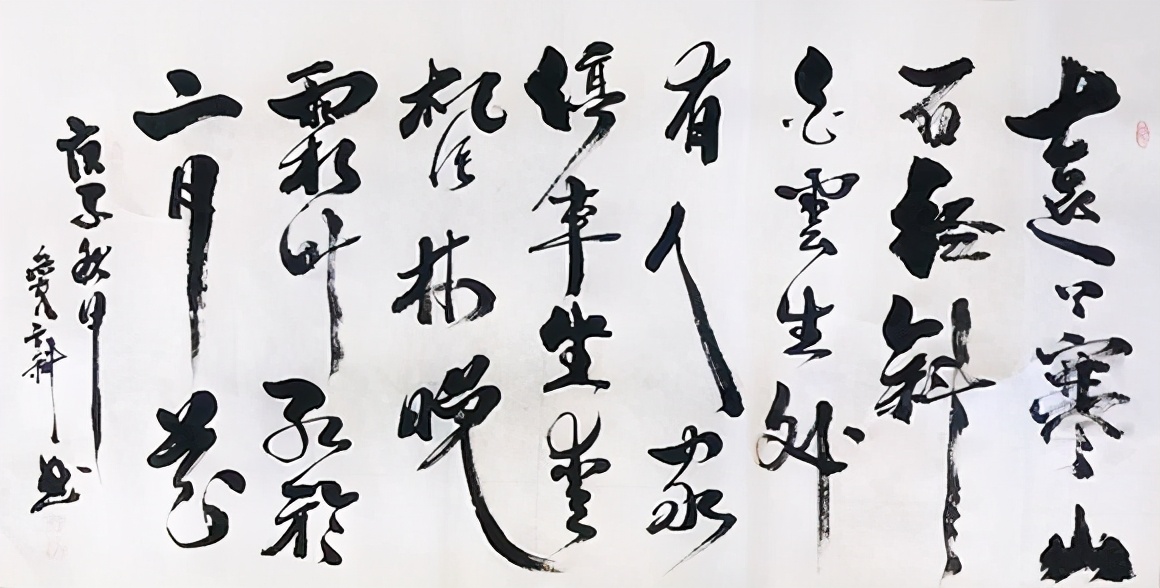 遠上寒山
石径斜
白雲生处
有人家
停車坐爱
枫林晚
霜叶红於
二月花
庚子秋
书